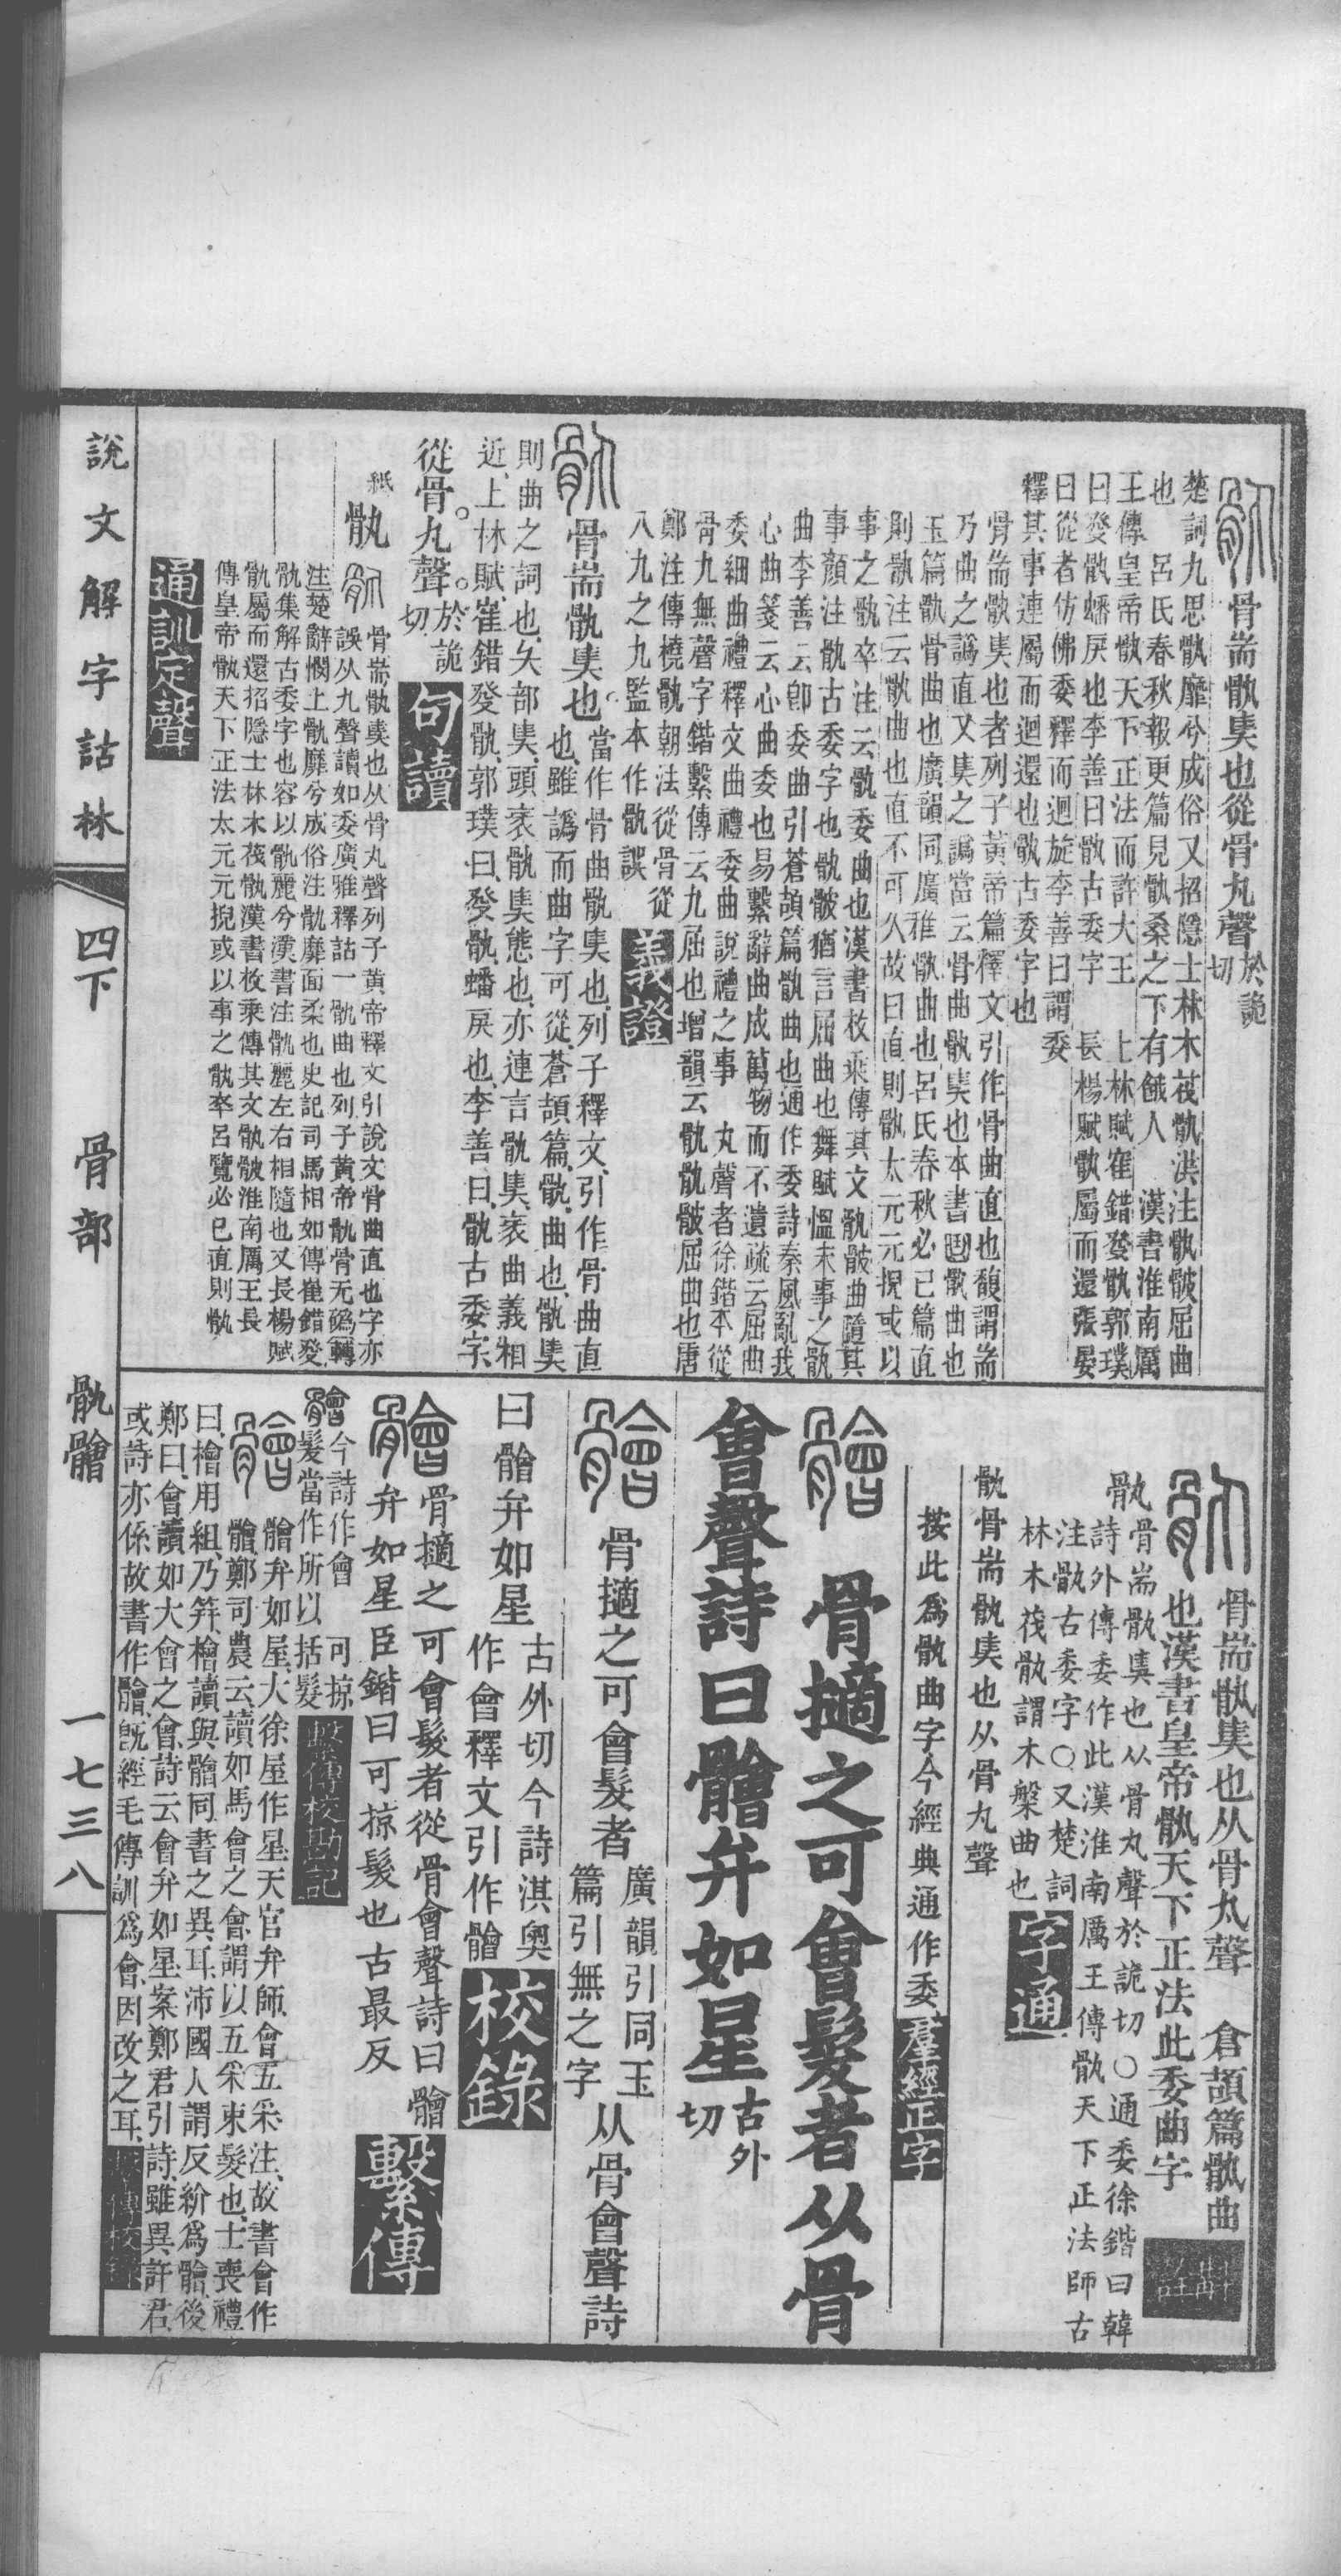 骨耑骫奊也從骨丸聲於詭切
楚詞九思骫靡兮成俗又招隱士林木茷骫洪注骫骳屈曲
也　呂氏春秋報更篇見骫桑之下有餓人　漢書淮南厲
王傳皇帝骫天下正法而許大王　上林賦崔錯癹骫郭璞
曰癹骫蟠戾也李善曰骫古委字　長楊賦骫屬而還張晏
曰從者仿佛委釋而迴旋李善曰謂委
釋其事連屬而迴還也骫古委字也
骨耑骫奊也者列子黃帝篇釋文引作骨曲直也馥謂耑
乃曲之譌直又奊之譌當云骨曲骫奊也本書骫曲也
玉篇骫骨曲也廣韻同廣雅骫曲也呂氏春秋必已篇直
則骫注云骫曲也直不可久故曰直則骫太元元掜或以
事之骫卒注云骫委曲也漢書枚乘傳其文骫骳曲隨其
事顏注骫古委字也骫骳猶言屈曲也舞賦慍末事之骫
曲李善云卽委曲引蒼頡篇骫曲也通作委詩秦風亂我
心曲箋云心曲委也易繫辭曲成萬物而不遺疏云屈曲
委細曲禮釋文曲禮委曲說禮之事　丸聲者徐鍇本從
骨九無聲字鍇繫傳云九屈也增韻云骫骫骳屈曲也唐
鄭注傳橈骫朝法從骨從
八九之九監本作骫誤
義證
骨耑骫奊也。當作骨曲骫奊也、列子釋文、引作骨曲直
也、雖譌而曲字可從、蒼頡篇、骫、曲也、骫奊
則曲之詞也、夨部奊、頭衺骫奊態也、亦連言骫奊、衺曲義相
近、上林賦、崔錯癹骫、郭璞曰、癹骫、蟠戾也、李善曰、骫古委字、
從骨。丸聲。於詭切
句讀
紙
骫
骨耑骫奊也从骨丸聲列子黃帝釋文引說文骨曲直也字亦
誤从九聲讀如委廣雅釋詁一骫曲也列子黃帝骫骨无䃣轉
注楚辭憫上骫靡兮成俗注骫靡面柔也史記司馬相如傳崔錯癹
骫集解古委字也容以骫麗兮漢書注骫麗左右相隨也又長楊賦
骫屬而還招隱士林木茷骫漢書枚乘傳其文骫骳淮南厲王長
傳皇帝骫天下正法太元元掜或以事之骫卒呂覽必已直則骫
通訓定聲
骨耑骫奊也从骨丸聲　倉頡篇骫曲
也漢書皇帝骫天下正法此委曲字
斠詮
骫
骨耑骫奊也从骨丸聲於詭切〇通委徐鍇曰韓
詩外傳委作此漢淮南厲王傳骫天下正法師古
注骫古委字〇又楚詞
林木茷骫謂木槃曲也
字通
骫骨耑骫奊也从骨丸聲
按此爲骫曲字今經典通作委
羣經正字
骨擿之可會髮者从骨
會聲詩曰䯤弁如星古外切
骨擿之可會髮者
廣韻引同玉
篇引無之字
从骨會聲詩
曰䯤弁如星
古外切今詩淇奧
作會釋文引作䯤
校錄
骨擿之可會髮者從骨會聲詩曰䯤
弁如星臣鍇曰可掠髮也古最反
繫傳
今詩作會　可掠
髮當作所以括髮
繫傳校勘記
䯤弁如星、大徐星作星、天官弁師、會五采、注、故書會作
䯤、鄭司農云、讀如馬會之會、謂以五采束髮也、士喪禮
曰、檜用組、乃笄、檜讀與䯤同、書之異耳、沛國人謂反紒爲䯤、後
鄭曰、會讀如大會之會、詩云會弁如星、案鄭君引詩、雖異許君、
或詩亦係故書作䯤、旣經毛傳訓爲會、因改之耳、
繫傳校錄
說文解字詁林
四下　骨部　骫䯤
一七三八